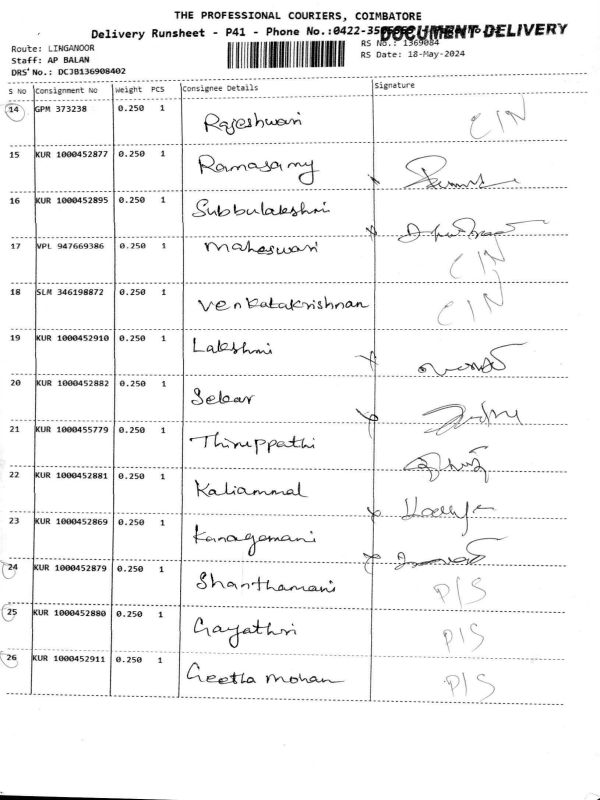 THE PROFESSIONAL COURIERS, COIMBATORE
Delivery Runsheet - P41 - Phone No.:0422-
DOCUMENT DELIVERY
Route: LINGANOOR
RS No.: 1369084
Staff: AP BALAN
RS Date: 18-May-2024
DRS No.: DCJB136908402
S No Consignment No Weight PCS Consignee Details Signature
14 GPM 373238 0.250 1 Rajeshwari C/N
15 KUR 1000452877 0.250 1 Ramasamy
16 KUR 1000452895 0.250 1 Subbulakshmi
17 VPL 947669386 0.250 1 Maheswari C/N
18 SLM 346198872 0.250 1 Venkatakrishnan C/N
19 KUR 1000452910 0.250 1 Lakshmi
20 KUR 1000452882 0.250 1 Sekar
21 KUR 1000455779 0.250 1 Thiruppathi
22 KUR 1000452881 0.250 1 Kaliammal
23 KUR 1000452869 0.250 1 Kanagamani
24 KUR 1000452879 0.250 1 Shanthamani P/S
25 KUR 1000452880 0.250 1 Gayathri P/S
26 KUR 1000452911 0.250 1 Geetha Mohan P/S